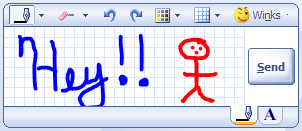 Winks
Hey!!
Send
A